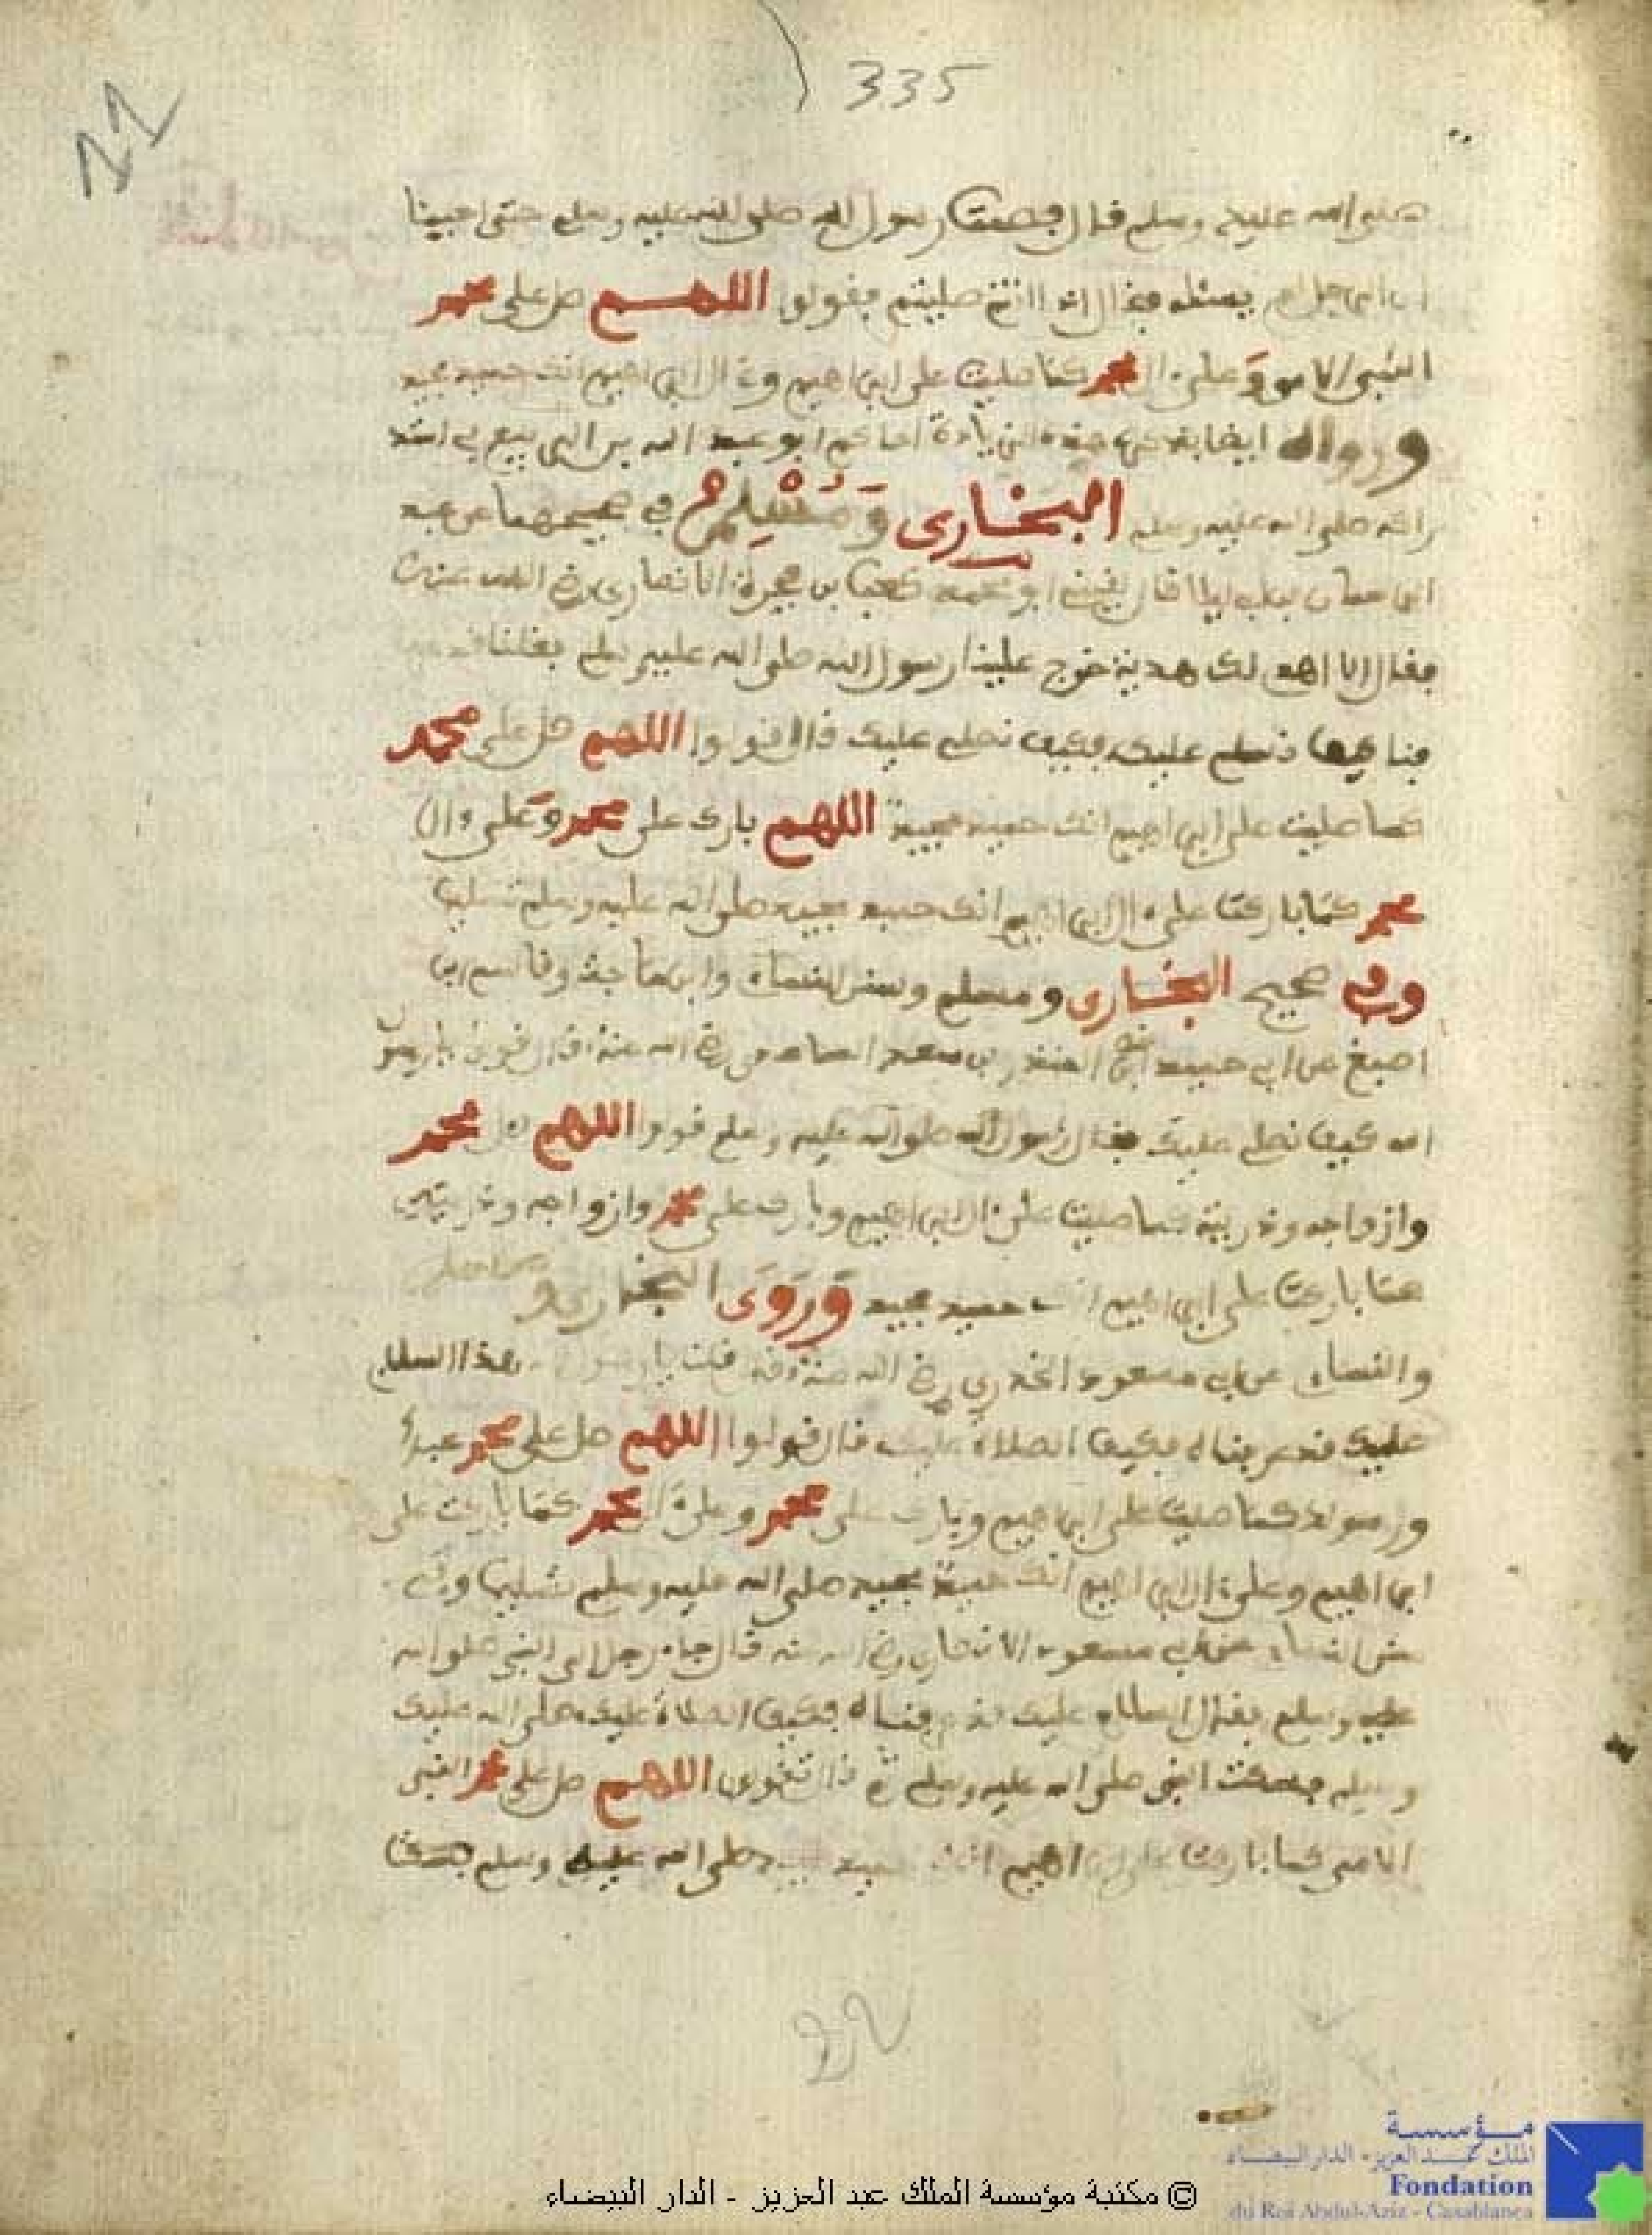 335
22
صلى الله عليه وسلم قال فصمت رسول الله صلى الله عليه وسلم حتى احببنا
ان الرجل لم يسئله فقال اذا انتم صليتم فقولوا اللهم صل على محمد
النبي الامي وعلى ءال محمد كما صليت على ابراهيم وءال ابراهيم انك حميد مجيد
ورواه ايضا هذه الزيادة الحاكم ابو عبد الله
صلى الله عليه وسلم البخاري ومسلم في صحيحهما عن عبد
ابي ليلى قال لقيني ابو محمد كعب بن عجرة الانصاري رضي الله عنه
فقال الا اهدي لك هدية خرج علينا رسول الله صلى الله عليه وسلم فقلنا قد
كيف نسلم عليك فكيف نصلي عليك قال قولوا اللهم صل على محمد
كما صليت على ابراهيم انك حميد مجيد اللهم بارك على محمد وعلى ءال
محمد كما باركت على ءال ابراهيم انك حميد مجيد صلى الله عليه وسلم تسليما
وفي صحيح البخاري ومسلم وسنن النساءي وابن ماجة وقاسم ابن
اصبغ عن ابي حميد المنذر بن سعد الساعدي رضي الله عنه قال قولوا يا رسول
الله كيف نصلي عليك فقال رسول الله صلى الله عليه وسلم قولوا اللهم صل محمد
وازواجه وذريته كما صليت على ءال ابراهيم وبارك على محمد وازواجه وذريته
كما باركت على ابراهيم انك حميد مجيد وروى البخاري
والنساءي عن ابي مسعود الخدري رضي الله عنه قلت يا رسول هذا السلام
عليك قد عرفناه فكيف الصلاة عليك قال قولوا اللهم صل على محمد عبدك
ورسولك كما صليت على ابراهيم وبارك على محمد وعلى ءال محمد كما باركت على
ابراهيم وعلى ءال ابراهيم انك حميد مجيد صلى الله عليه وسلم تسليما وفي
سنن النساءي عن ابي مسعود الانصاري رضي الله عنه قال جاء رجل الى النبي صلى الله
عليه وسلم فقال السلام عليك قد عرفناه فكيف الصلاة عليك صلى الله عليك
وسلم فسكت النبي صلى الله عليه وسلم ثم قال تقولون اللهم صل على محمد النبي
الامي كما باركت على ابراهيم انك حميد مجيد صلى الله عليه وسلم
32
مؤسسة
الملك عبد العزيز - الدار البيضاء
Fondation
du Roi Abdul-Aziz - Casablanca
© مكتبة مؤسسة الملك عبد العزيز - الدار البيضاء